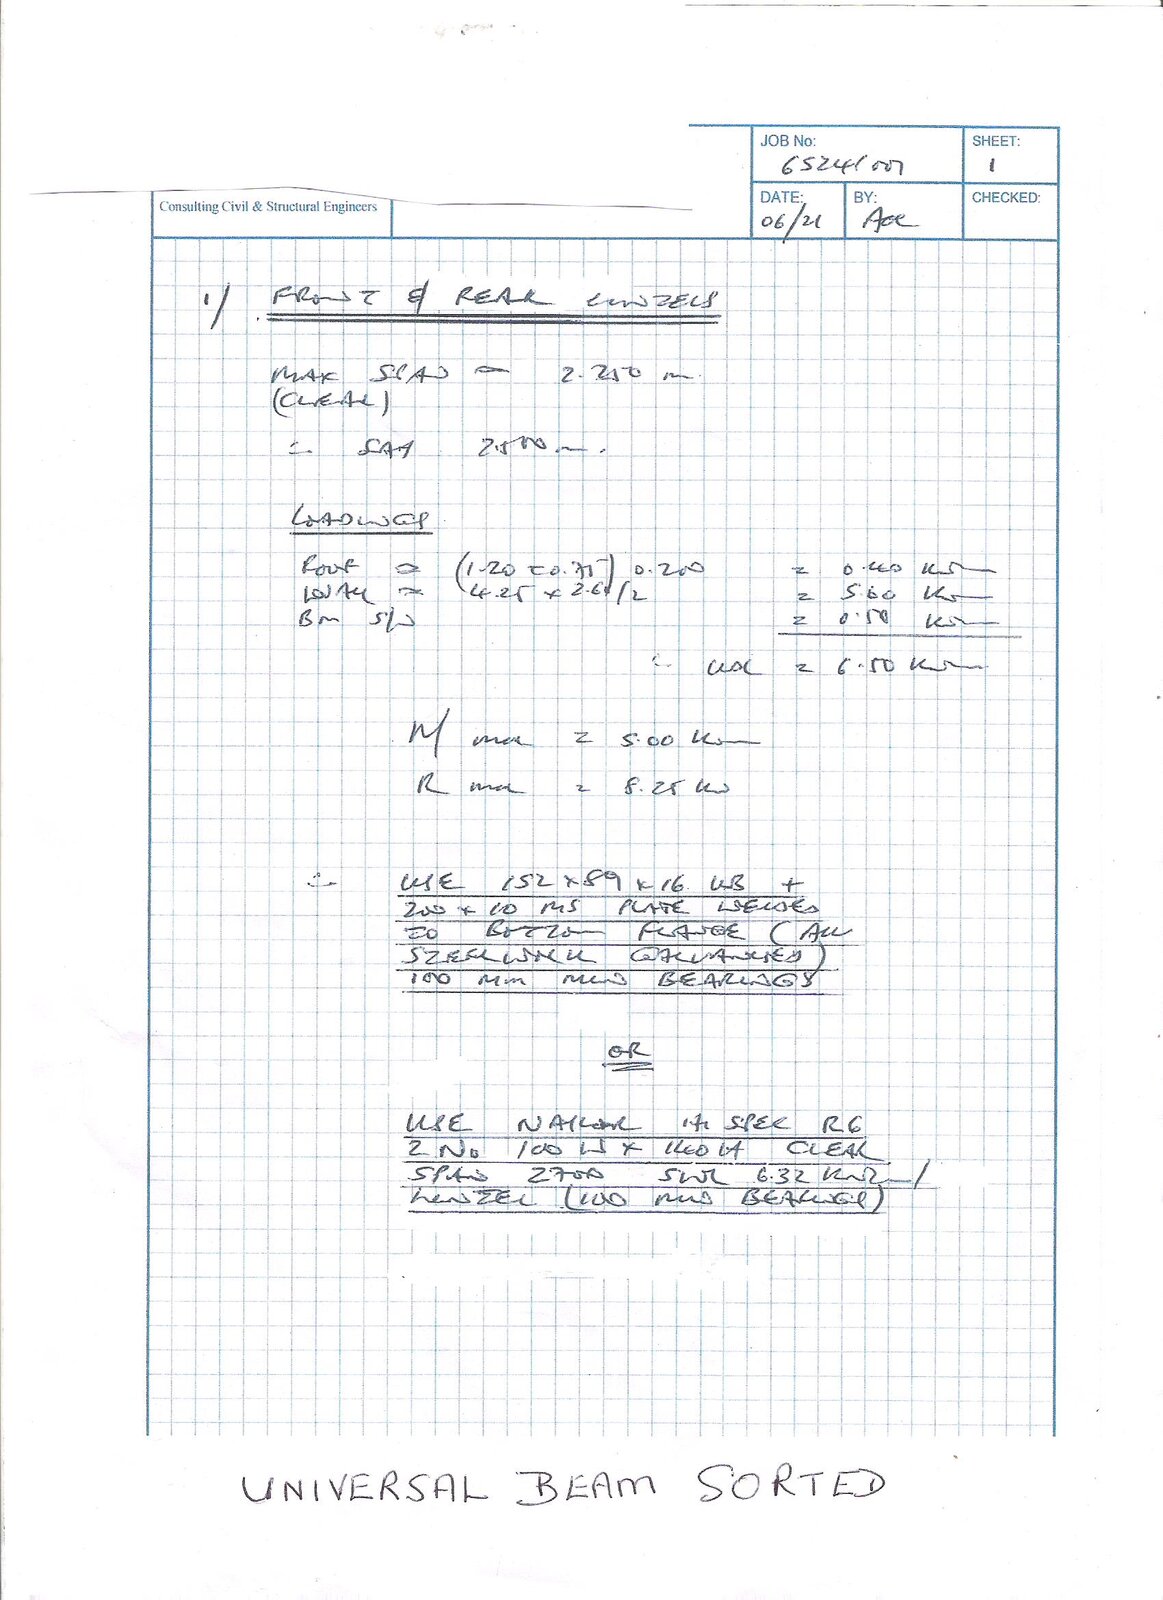 JOB No:
SHEET:
1
Consulting Civil & Structural Engineers
DATE:
06/21
BY:
CHECKED:
1/ FRONT & REAR LINTELS
MAX SPAN = 2.250 m.
(CLEAR)
∴ SAY 2.500 m.
LOADINGS
ROOF = (1.20 + 0.75) 0.200 = 0.40 KN/m
WALL = 4.25 x 2.60/2 = 5.60 KN/m
BM S/W = 0.50 KN/m
∴ UDL = 6.50 KN/m
M max = 5.00 KNm
R max = 8.25 KN
∴ USE 152 x 89 x 16 UB +
200 x 10 MS PLATE WELDED
TO BOTTOM FLANGE (ALL
STEELWORK GALVANISED)
100 mm MIN BEARINGS
OR
USE SPEC R6
2 No 100 W x 140 H CLEAR
SPAN 2700 SWL 6.32 KN/m/
LINTEL (100 MIN BEARINGS)
UNIVERSAL BEAM SORTED